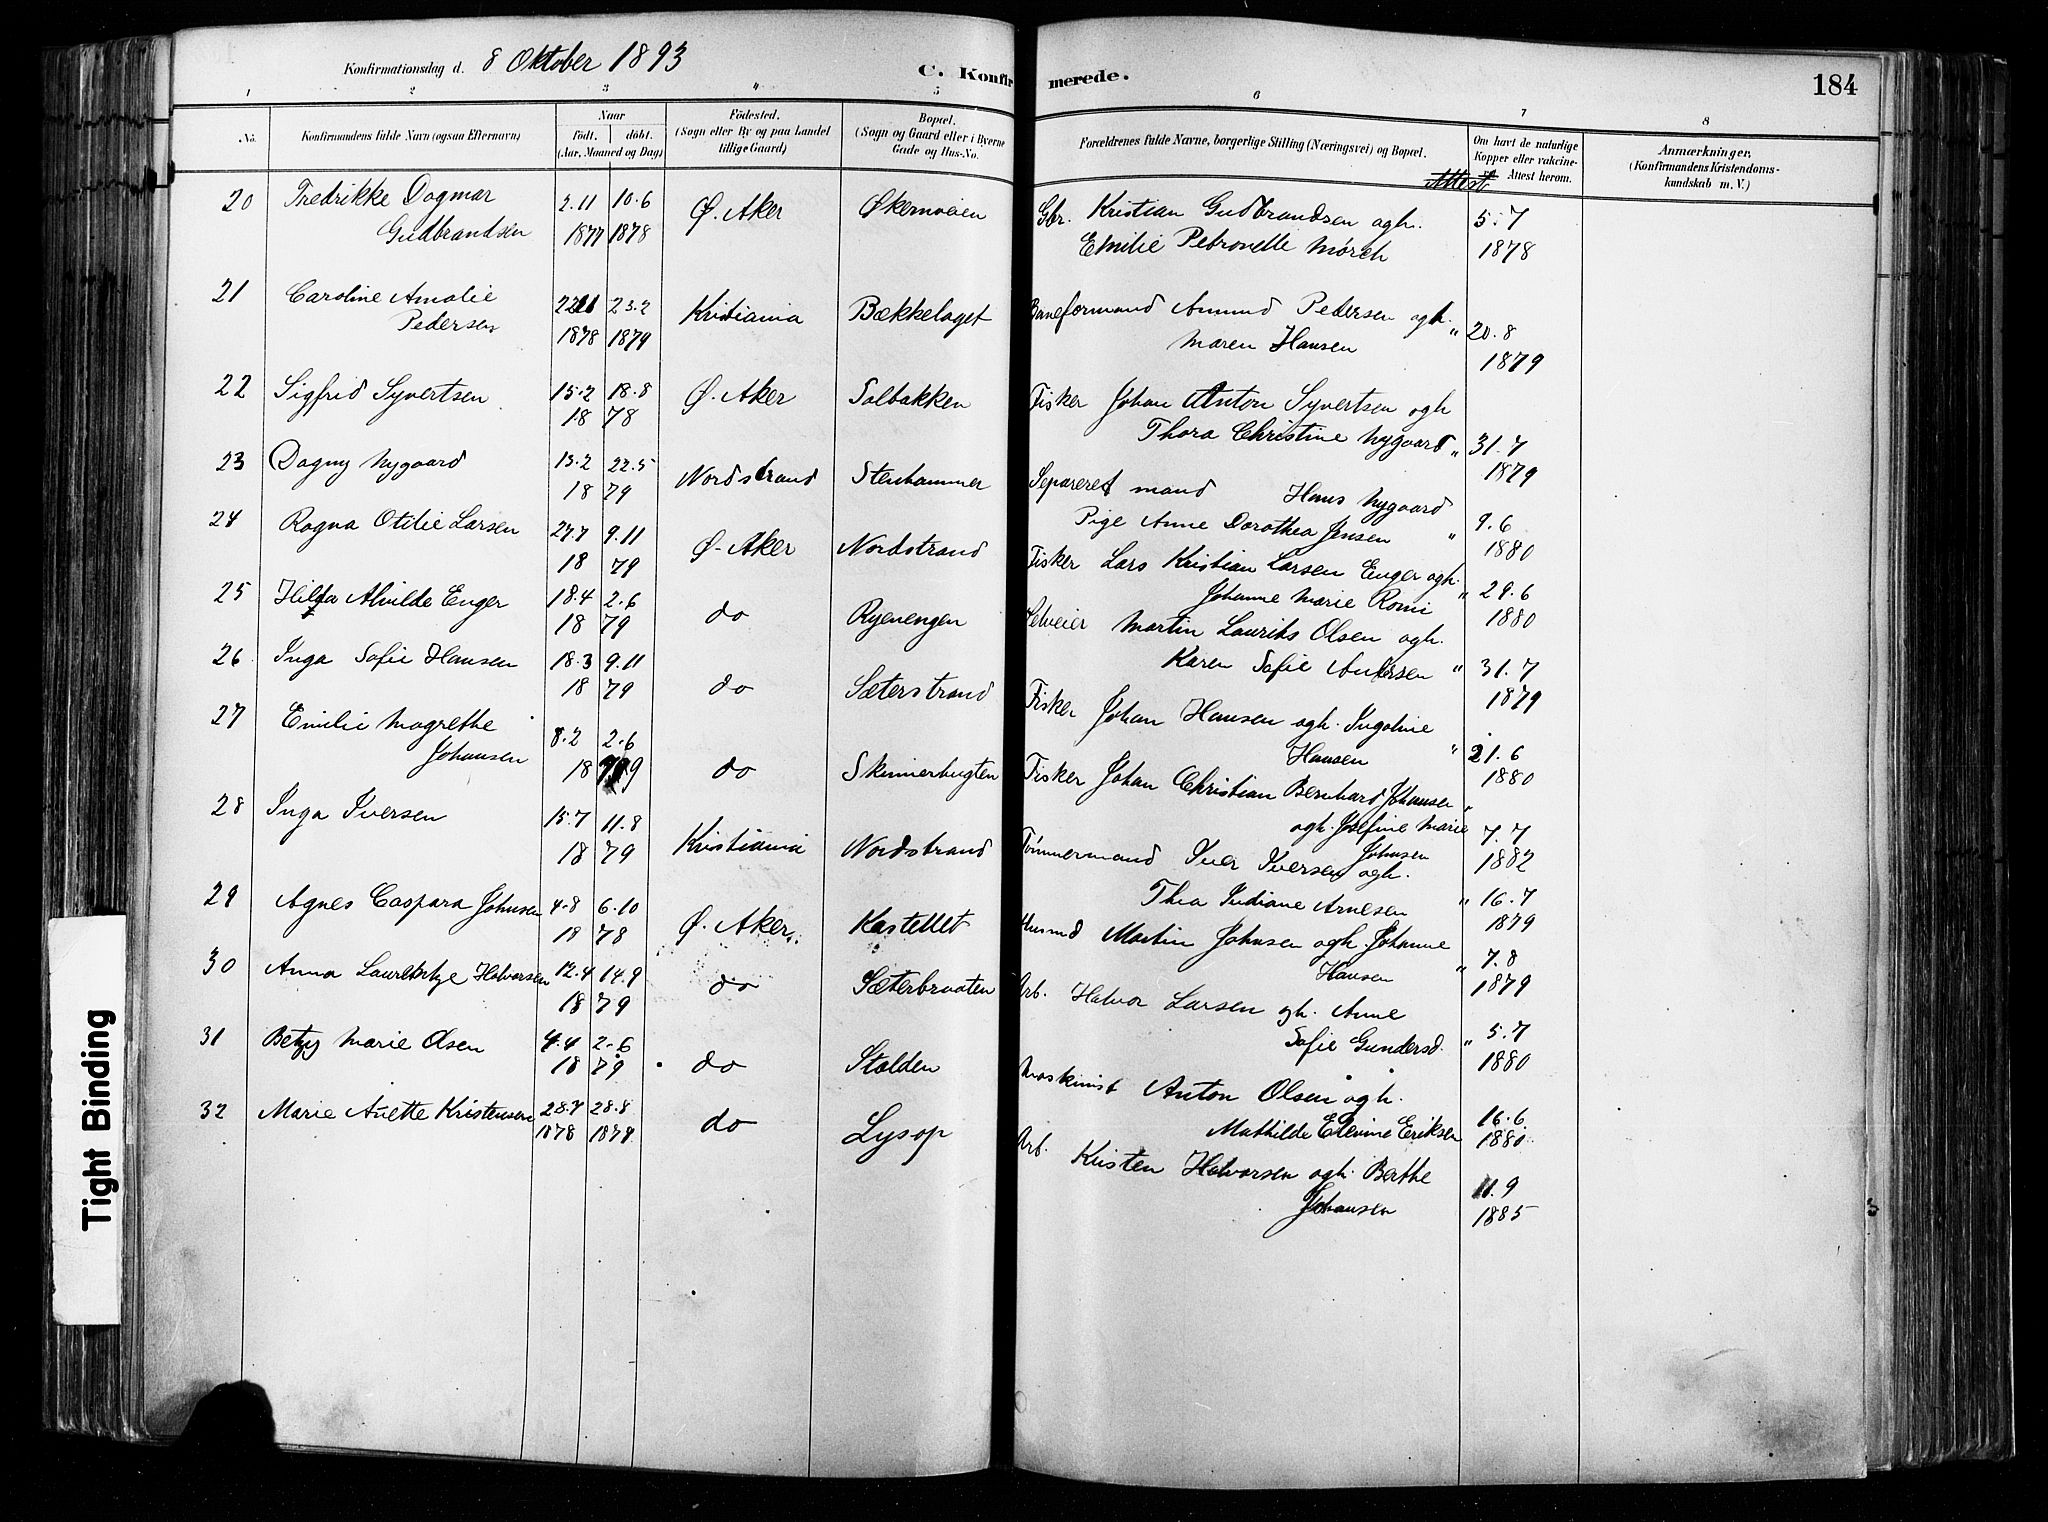 Konfirmationsdag d. 8 Oktober 1893
C. Konfirmerede.
184
1 2 3 4 5 6 7 8
No.
Konfirmandens fulde Navn (ogsaa Efternavn)
Naar
födt. döbt.
(Aar, Maaned og Dag)
Födested.
(Sogn eller By og paa Landet
tillige Gaard)
Bopæl.
(Sogn og Gaard eller i Byerne
Gade og Hus-No.
Forældrenes fulde Navne, borgerlige Stilling (Næringsvei) og Bopæl.
Om havt de naturlige
Kopper eller vakcine-
Attest herom.
Attest
Anmærkninger.
(Konfirmandens Kristendoms-
kundskab m. V.)
20 Fredrikke Dagmar 2.11 10.6 Ø. Aker Økernveien Gbr. Kristian Gudbrandsen ogh. 5.7
Gudbrandsen 1877 1878 Emilie Petronelle Mörch 1878
21 Caroline Amalie 23.2 Kristiania Bækkelaget Baneformand Amund Pedersen ogh. " 20.8
Pedersen 1878 1879 Maren Hansen 1879
22 Sigfrid Syvertsen 15.2 18.8 Ø. Aker Solbakken Fisker Johan Anton Syvertsen ogh
18 78 Thora Christine Nygaard " 31.7
1879
23 Dagny Nygaard 13.2 22.5 Nordstrand Stenhammer Separeret mand Hans Nygaard
18 79 Pige Anne Dorothea Jensen " 9.6
1880
24 Ragna Otilie Larsen 27.7 9.11 Ø. Aker Nordstrand Fisker Lars Kristian Larsen Enger ogh.
18 79 Johanne Marie Romi " 29.6
1880
25 Hilda Alvilde Enger 18.4 2.6 do Ryenengen Selveier Martin Laurits Olsen ogh.
18 79 Karen Sofie Andersen " 31.7
1879
26 Inga Sofie Hansen 18.3 9.11 do Sæterstrand Fisker Johan Hansen ogh. Ingoline
18 79 Hansen " 21.6
1880
27 Emilie Magrethe 8.2 2.6 do Skinnerbugten Fisker Johan Christian Bernhard Johansen
Johansen 18 79 ogh. Josefine Marie 7.7
Johnsen 1882
28 Inga Iversen 15.7 11.8 Kristiania Nordstrand Tömmermand Iver Iversen ogh.
18 79 Thea Indiane Arnesen " 16.7
1879
29 Agnes Caspara Johnsen 4.8 6.10 Ø. Aker. Kastellet Husmd Martin Johnsen ogh. Johanne 7.8
18 78 Hansen " 1879
30 Anna Halvorsen 12.4 14.9 do Sæterbraaten Arb. Halvor Larsen ogh. Anne
18 79 Sofie Gundersd. " 5.7
1880
31 Betzy Marie Olsen 4.4 2.6 do Stolden Maskinist Anton Olsen ogh.
18 79 Mathilde Eriksen 16.6
1880
32 Marie Anette Kristensen 28.7 28.8 do Lysop Arb. Kristen Halvorsen ogh. Berthe 11.9
1878 1879 Johansen 1885
Tight Binding